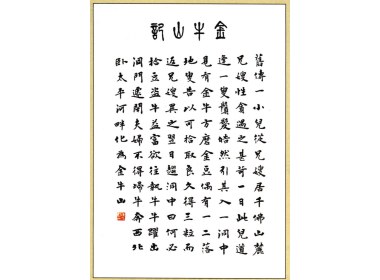 金牛山記
舊傳一小兒從兄嫂居千佛山麓
兄嫂性貪遇之甚苛一日此兒道
逢一叟鬚髮皓然引其入一洞中
見有金牛方磨金豆偶有一二落
地叟告以可拾取良久得三粒而
返兄嫂異之翌日趨洞中曰何必
拾豆盗牛益富欲往執牛牛躍出
洞門遽閉夫婦不得歸牛奔西北
卧太平河畔化為金牛山